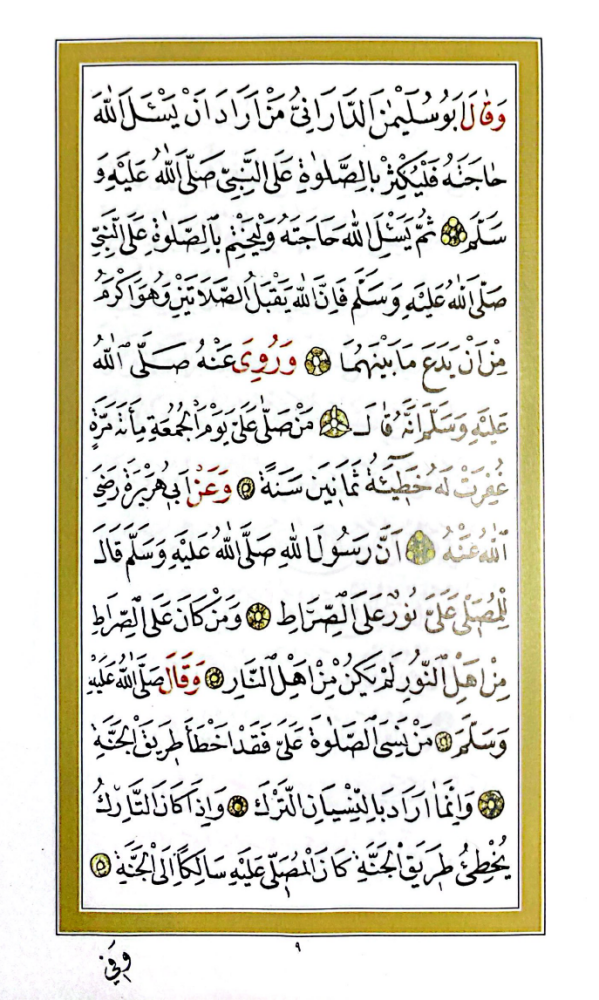 وَقَالَ اَبُو سُلَيْمٰنَ الدَّارَانِىُّ مَنْ اَرَادَ اَنْ يَسْـَٔلَ اللّٰهَ
حَاجَتَهُ فَلْيُكْثِرْ بِالصَّلٰوةِ عَلَى النَّبِىِّ صَلَّى اللّٰهُ عَلَيْهِ وَ
سَلَّمَ ثُمَّ يَسْـَٔلِ اللّٰهَ حَاجَتَهُ وَلْيَخْتِمْ بِالصَّلٰوةِ عَلَى النَّبِىِّ
صَلَّى اللّٰهُ عَلَيْهِ وَسَلَّمَ فَاِنَّ اللّٰهَ يَقْبَلُ الصَّلَاتَيْنِ وَهُوَ اَكْرَمُ
مِنْ اَنْ يَدَعَ مَا بَيْنَهُمَا وَرُوِىَ عَنْهُ صَلَّى اللّٰهُ
عَلَيْهِ وَسَلَّمَ اَنَّهُ قَالَ مَنْ صَلَّى عَلَىَّ يَوْمَ الْجُمُعَةِ مِائَةَ مَرَّةٍ
غُفِرَتْ لَهُ خَطِيْٓئَةُ ثَمَانِينَ سَنَةً وَعَنْ اَبِى هُرَيْرَةَ رَضِىَ
اللّٰهُ عَنْهُ اَنَّ رَسُولَ اللّٰهِ صَلَّى اللّٰهُ عَلَيْهِ وَسَلَّمَ قَالَ
لِلْمُصَلِّى عَلَىَّ نُورٌ عَلَى الصِّرَاطِ وَمَنْ كَانَ عَلَى الصِّرَاطِ
مِنْ اَهْلِ النُّورِ لَمْ يَكُنْ مِنْ اَهْلِ النَّارِ وَقَالَ صَلَّى اللّٰهُ عَلَيْهِ
وَسَلَّمَ مَنْ نَسِىَ الصَّلٰوةَ عَلَىَّ فَقَدْ اَخْطَأَ طَرِيقَ الْجَنَّةِ
وَاِنَّمَا اَرَادَ بِالنِّسْيَانِ التَّرْكَ وَاِذَا كَانَ التَّارِكُ
يُخْطِئُ طَرِيقَ الْجَنَّةِ كَانَ الْمُصَلِّى عَلَيْهِ سَالِكًا اِلَى الْجَنَّةِ
٩
وَفِى